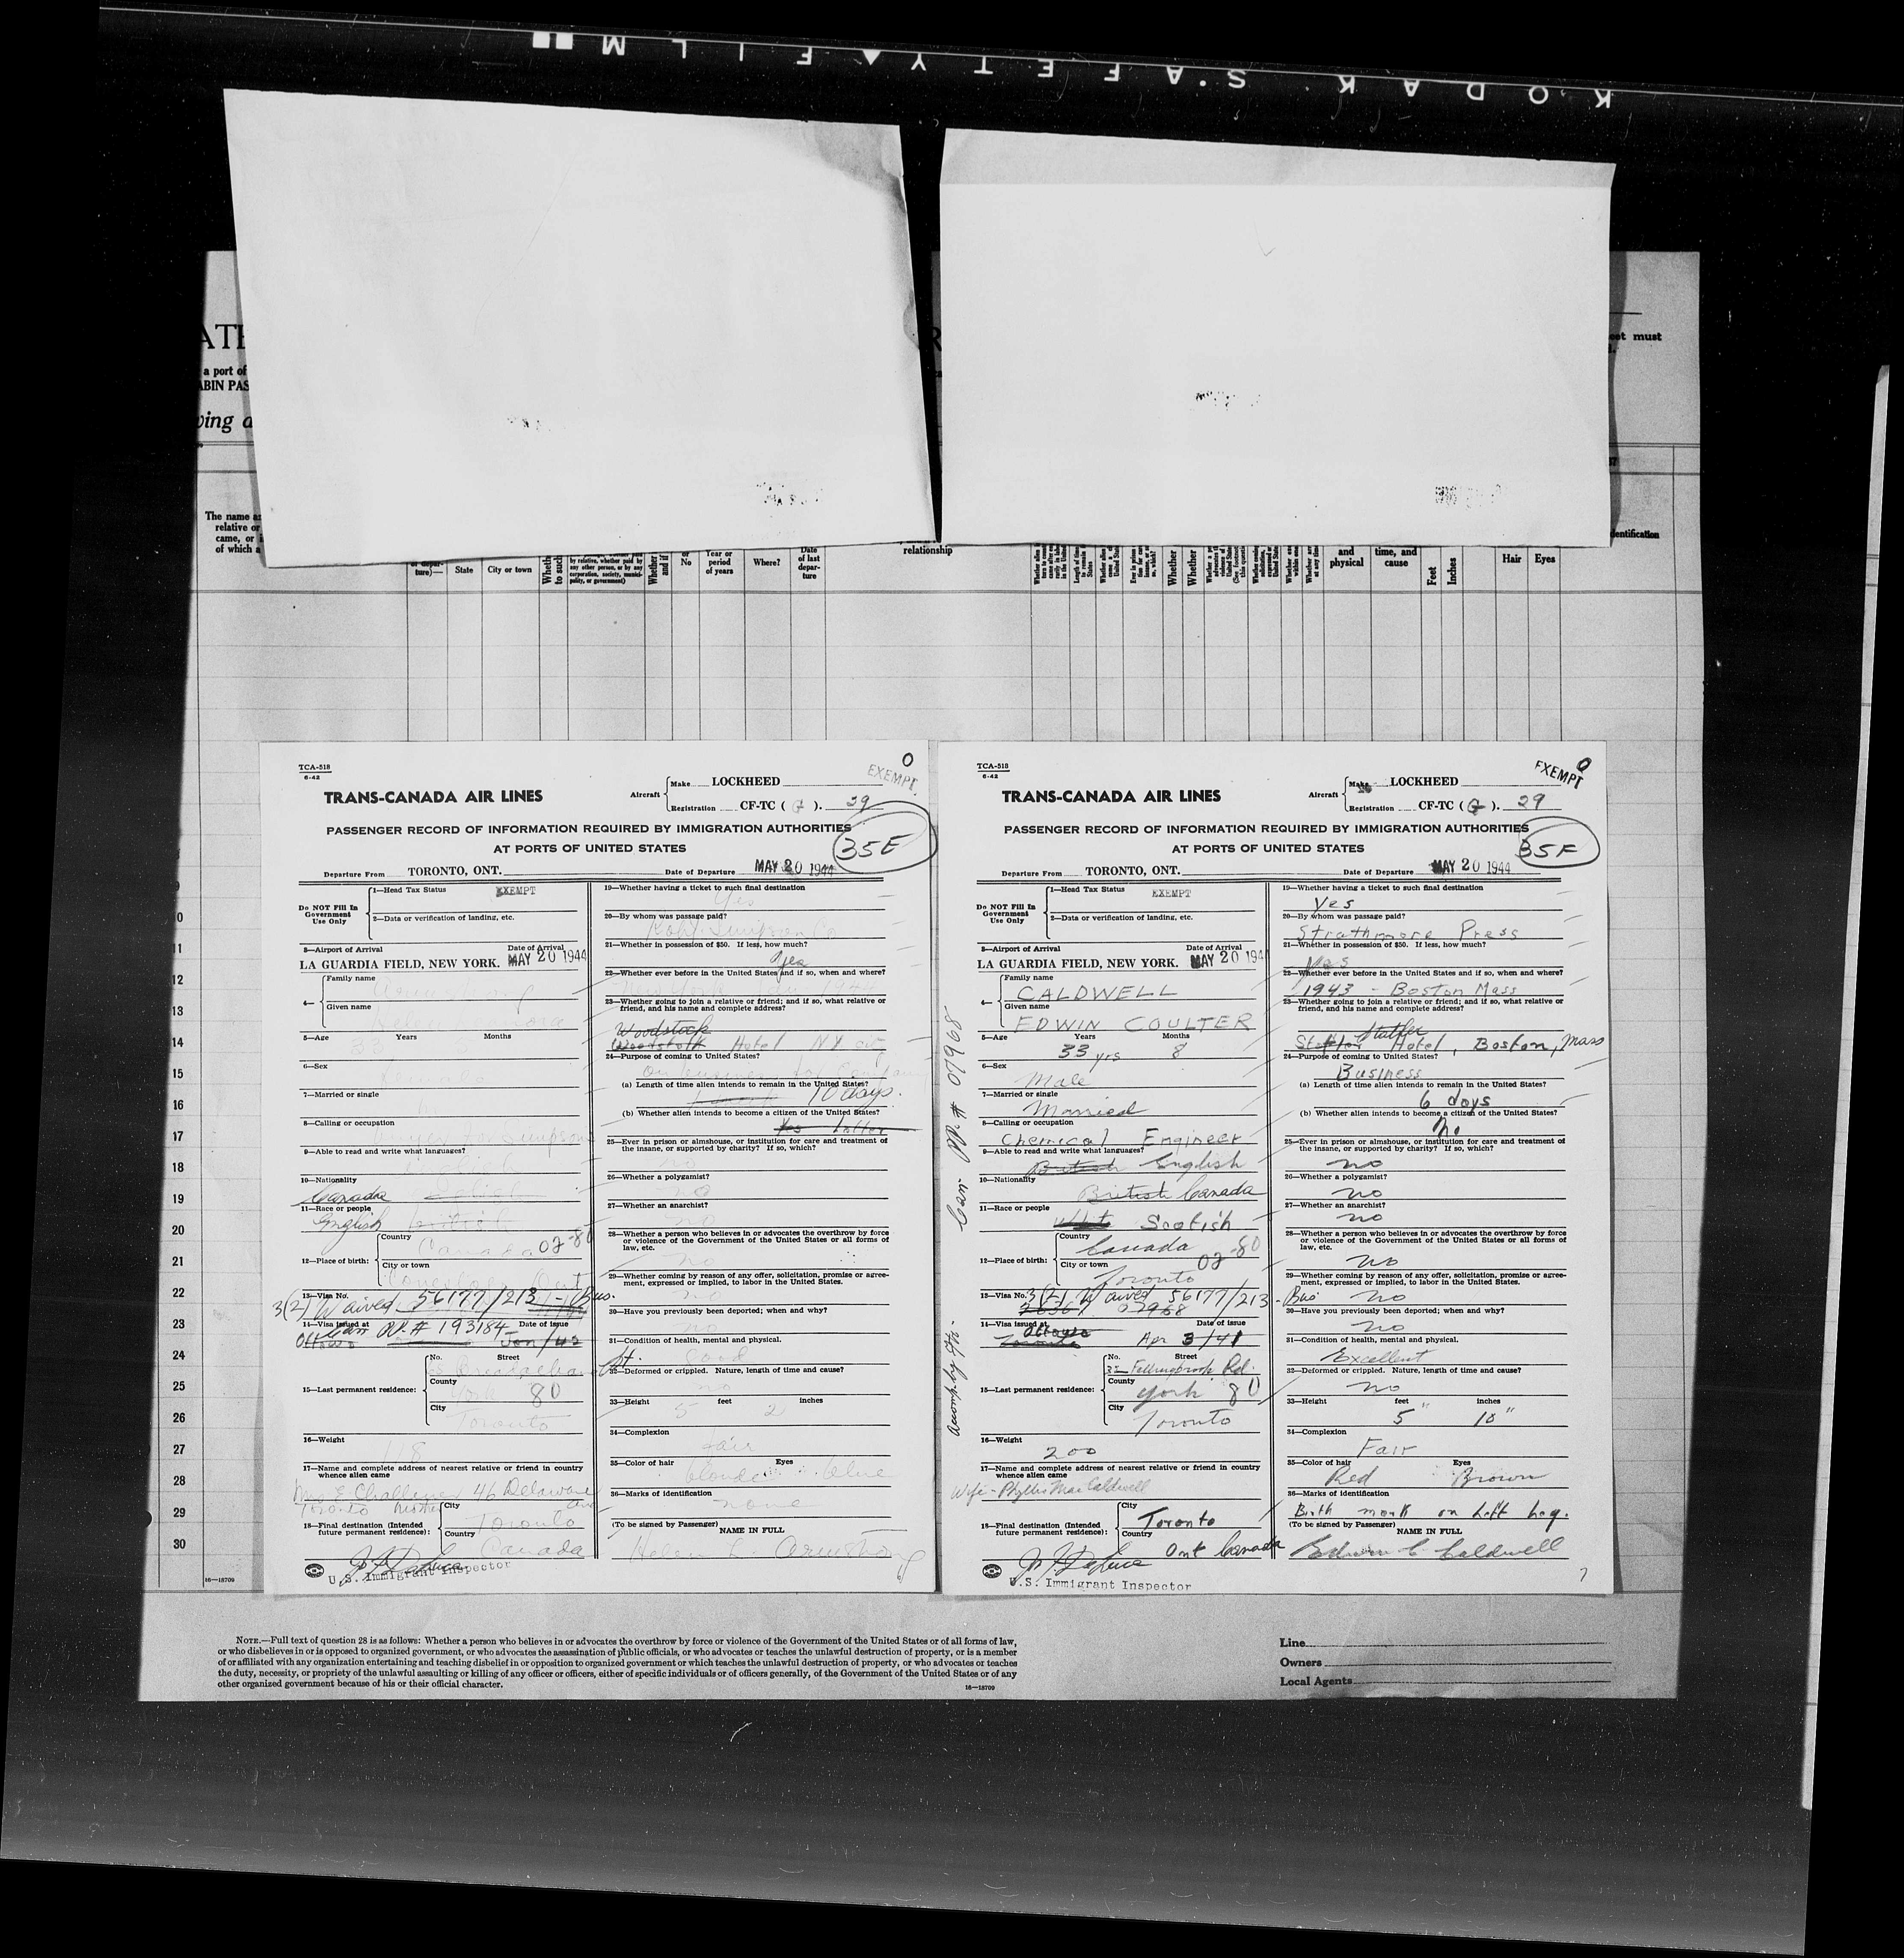 KODAK SAFETY FILM
ATE
a port of
ABIN PAS
ving a
R
eet must
The name a
relative or
came, or
of which a
ture)—
State
City or town
by relative, whether paid by
any other person, or by any
corporation, society, munici-
pality, or government)
No
Year or
period
of years
Where?
Date
of last
depar-
ture
relationship
Whether
Whether
and
physical
time, and
cause
Feet
Inches
Hair
Eyes
dentification
TCA-518
6-42
EXEMPT
0
TRANS-CANADA AIR LINES
Aircraft
Make LOCKHEED
Registration CF-TC ( ). 29
PASSENGER RECORD OF INFORMATION REQUIRED BY IMMIGRATION AUTHORITIES
AT PORTS OF UNITED STATES
35E
Departure From TORONTO, ONT. Date of Departure MAY 20 1944
Do NOT Fill In
Government
Use Only
1—Head Tax Status EXEMPT
2—Data or verification of landing, etc.
3—Airport of Arrival Date of Arrival
LA GUARDIA FIELD, NEW YORK. MAY 20 1944
4— Family name
Given name
5—Age Years Months
6—Sex
7—Married or single
8—Calling or occupation
9—Able to read and write what languages?
10—Nationality
Canada
11—Race or people
English
12—Place of birth:
Country
Canada 02-80
City or town
13—Visa No.
3(2) Waived 56177/213 - Bus.
14—Visa issued at Date of issue
Ottawa Can PP. # 193184 Jan/43
15—Last permanent residence:
No. Street
County
York 80
City
Toronto
16—Weight
118
17—Name and complete address of nearest relative or friend in country
whence alien came
Mrs E. Challener 46 Delaware
Toronto Mother Ave
18—Final destination (Intended
future permanent residence):
City
Toronto
Country
Canada
U.S. Immigrant Inspector
19—Whether having a ticket to such final destination
Yes
20—By whom was passage paid?
Robt. Simpson Co
21—Whether in possession of $50. If less, how much?
Yes
22—Whether ever before in the United States and if so, when and where?
New York
23—Whether going to join a relative or friend; and if so, what relative or
friend, and his name and complete address?
Woodstock
Woodstock Hotel NY city
24—Purpose of coming to United States?
on business for Company
(a) Length of time alien intends to remain in the United States?
10 days.
(b) Whether alien intends to become a citizen of the United States?
25—Ever in prison or almshouse, or institution for care and treatment of
the insane, or supported by charity? If so, which?
no
26—Whether a polygamist?
no
27—Whether an anarchist?
no
28—Whether a person who believes in or advocates the overthrow by force
or violence of the Government of the United States or all forms of
law, etc.
no
29—Whether coming by reason of any offer, solicitation, promise or agree-
ment, expressed or implied, to labor in the United States.
no
30—Have you previously been deported; when and why?
no
31—Condition of health, mental and physical.
Good
32—Deformed or crippled. Nature, length of time and cause?
no
33—Height feet inches
5 2
34—Complexion
fair
35—Color of hair Eyes
blonde blue
36—Marks of identification
none
(To be signed by Passenger) NAME IN FULL
Helen L. Armstrong
16—18709
TCA-518
6-42
EXEMPT
0
TRANS-CANADA AIR LINES
Aircraft
Make LOCKHEED
Registration CF-TC (G). 29
PASSENGER RECORD OF INFORMATION REQUIRED BY IMMIGRATION AUTHORITIES
AT PORTS OF UNITED STATES
35F
Departure From TORONTO, ONT. Date of Departure MAY 20 1944
Do NOT Fill In
Government
Use Only
1—Head Tax Status EXEMPT
2—Data or verification of landing, etc.
3—Airport of Arrival Date of Arrival
LA GUARDIA FIELD, NEW YORK. MAY 20 1944
4— Family name
CALDWELL
Given name
EDWIN COULTER
5—Age Years Months
33 yrs 8
6—Sex
Male
7—Married or single
Married
8—Calling or occupation
Chemical Engineer
9—Able to read and write what languages?
British English
10—Nationality
British Canada
11—Race or people
Scotish
12—Place of birth:
Country
Canada 02-80
City or town
Toronto
13—Visa No. 3(2) Waived 56177/213 - Bus
07968
14—Visa issued at Date of issue
Ottawa Apr 3/41
Toronto
15—Last permanent residence:
No. Street
Fallingbrook Rd.
County
York 80
City
Toronto
16—Weight
200
17—Name and complete address of nearest relative or friend in country
whence alien came
Wife - Phyllis Mae Caldwell
18—Final destination (Intended
future permanent residence):
City
Toronto
Country
Ont Canada
U.S. Immigrant Inspector
Can. PP. # 07968
19—Whether having a ticket to such final destination
Yes
20—By whom was passage paid?
Strathmore Press
21—Whether in possession of $50. If less, how much?
Yes
22—Whether ever before in the United States and if so, when and where?
1943 - Boston Mass
23—Whether going to join a relative or friend; and if so, what relative or
friend, and his name and complete address?
Statler
Hotel, Boston, Mass
24—Purpose of coming to United States?
Business
(a) Length of time alien intends to remain in the United States?
6 days
(b) Whether alien intends to become a citizen of the United States?
No
25—Ever in prison or almshouse, or institution for care and treatment of
the insane, or supported by charity? If so, which?
no
26—Whether a polygamist?
no
27—Whether an anarchist?
no
28—Whether a person who believes in or advocates the overthrow by force
or violence of the Government of the United States or all forms of
law, etc.
no
29—Whether coming by reason of any offer, solicitation, promise or agree-
ment, expressed or implied, to labor in the United States.
no
30—Have you previously been deported; when and why?
no
31—Condition of health, mental and physical.
Excellent
32—Deformed or crippled. Nature, length of time and cause?
no
33—Height feet inches
5" 10"
34—Complexion
Fair
35—Color of hair Eyes
Red Brown
36—Marks of identification
Birth mark on left leg.
(To be signed by Passenger) NAME IN FULL
Edwin C Caldwell
7
9
0
11
12
13
14
15
16
17
18
19
20
21
22
23
24
25
26
27
28
29
30
NOTE.—Full text of question 28 is as follows: Whether a person who believes in or advocates the overthrow by force or violence of the Government of the United States or of all forms of law,
or who disbelieves in or is opposed to organized government, or who advocates the assassination of public officials, or who advocates or teaches the unlawful destruction of property, or is a member
of or affiliated with any organization entertaining and teaching disbelief in or opposition to organized government or which teaches the unlawful destruction of property, or who advocates or teaches
the duty, necessity, or propriety of the unlawful assaulting or killing of any officer or officers, either of specific individuals or of officers generally, of the Government of the United States or of any
other organized government because of his or their official character.
16—18709
Line
Owners
Local Agents